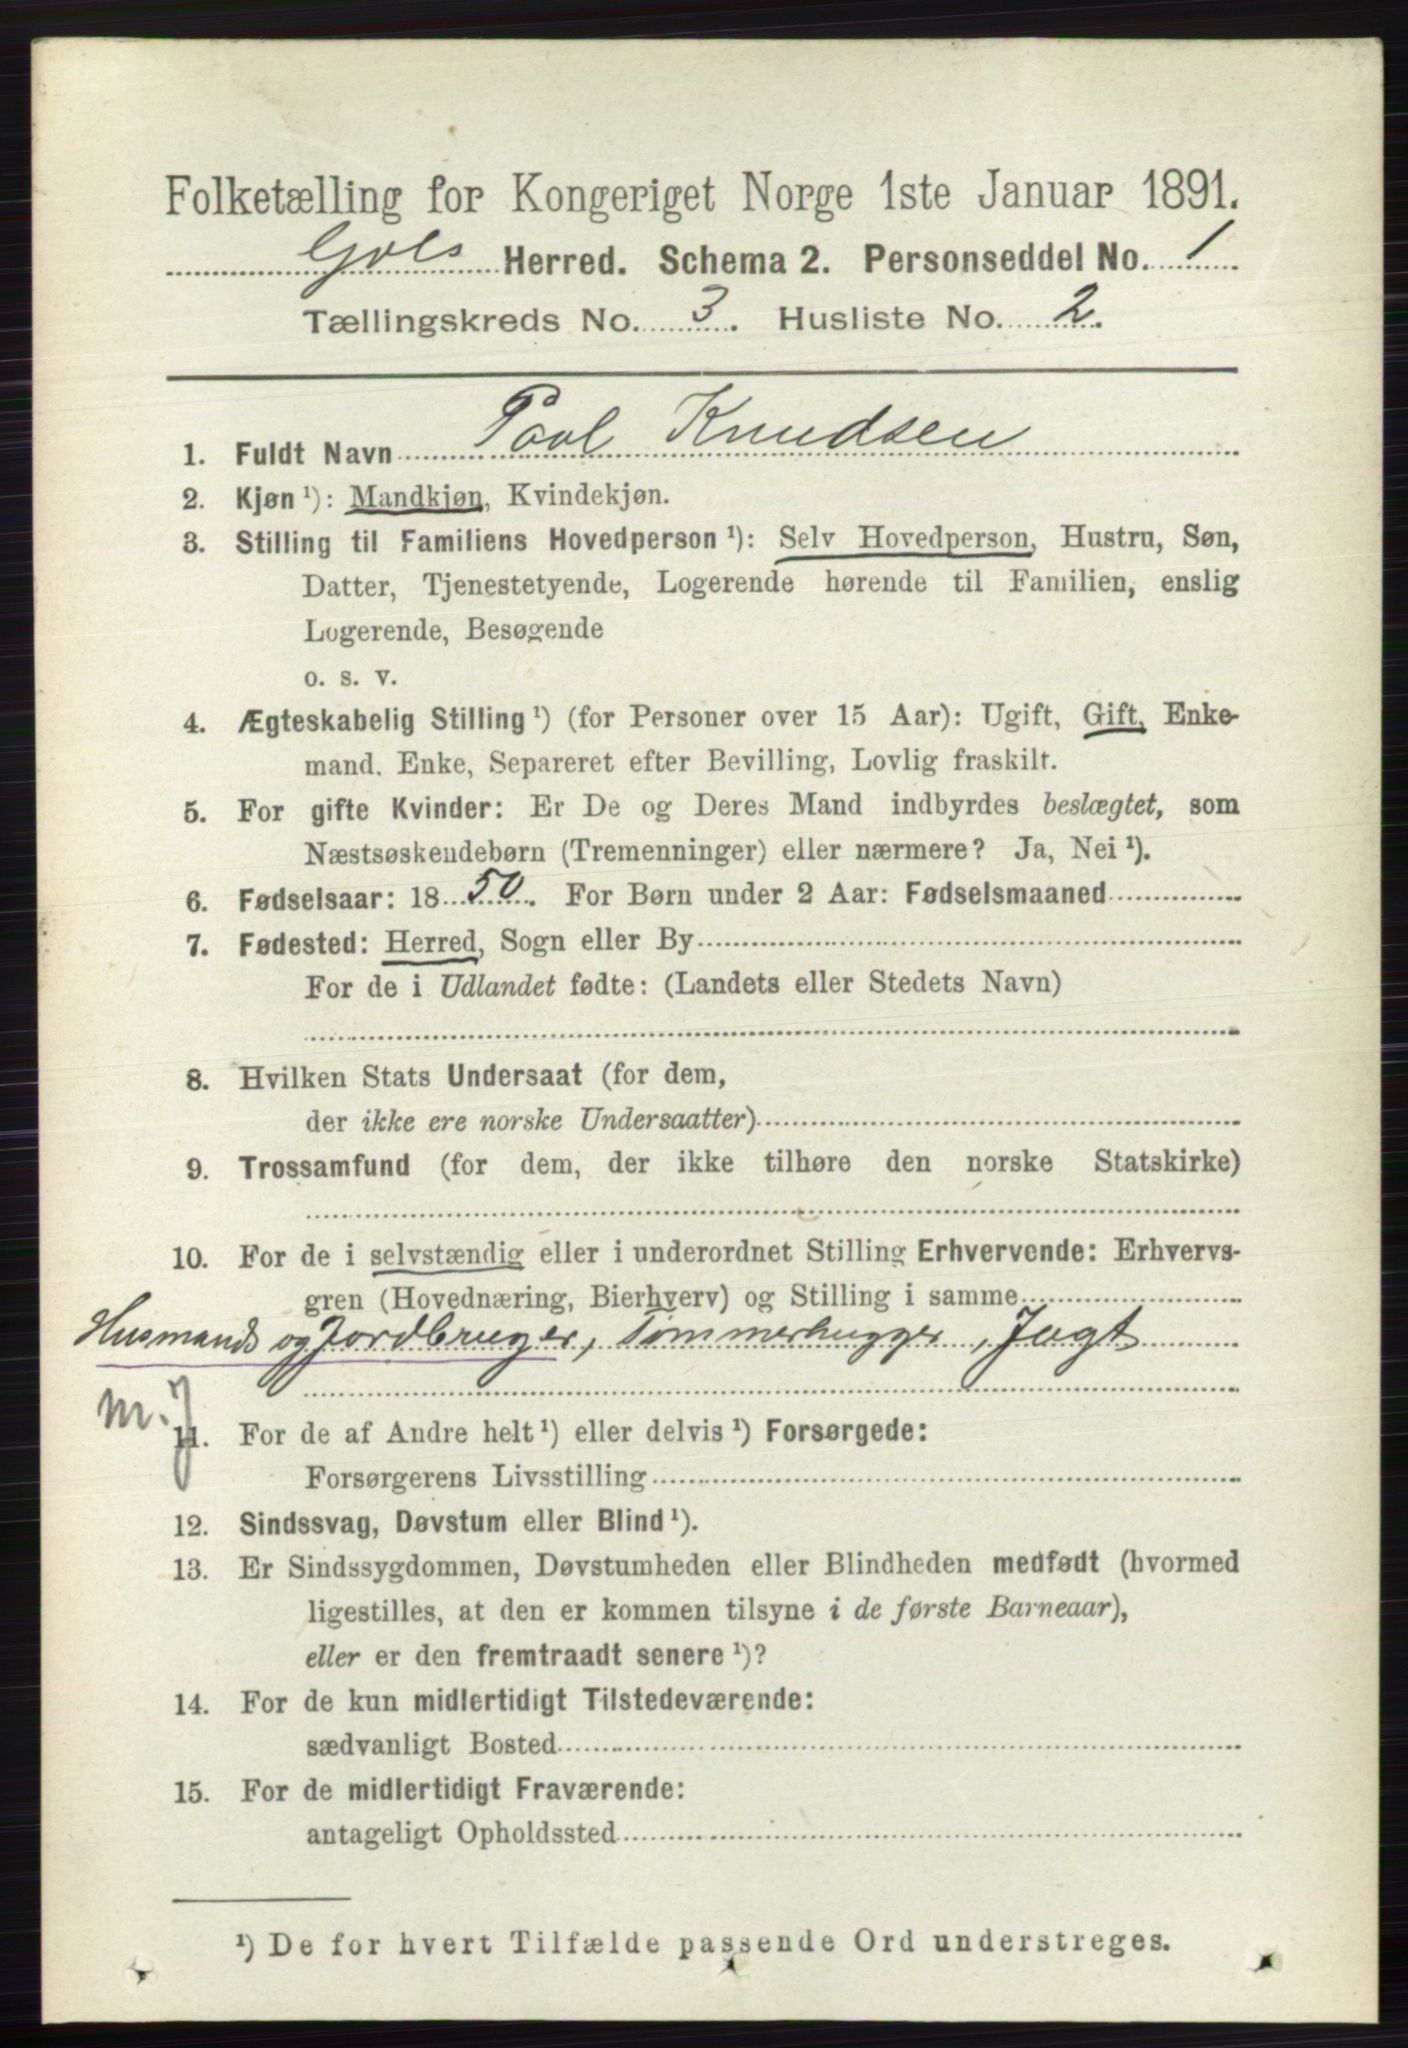 Folketælling for Kongeriget Norge 1ste Januar 1891.
Gols Herred. Schema 2. Personseddel No. 1
Tællingskreds No. 3. Husliste No. 2.
1. Fuldt Navn Paul Knudsen
2. Kjøn ¹): Mandkjøn, Kvindekjøn.
3. Stilling til Familiens Hovedperson ¹): Selv Hovedperson, Hustru, Søn,
Datter, Tjenestetyende, Logerende hørende til Familien, enslig
Logerende, Besøgende
o. s. v.
4. Ægteskabelig Stilling ¹) (for Personer over 15 Aar): Ugift, Gift, Enke-
mand. Enke, Separeret efter Bevilling, Lovlig fraskilt.
5. For gifte Kvinder: Er De og Deres Mand indbyrdes beslægtet, som
Næstsøskendebørn (Tremenninger) eller nærmere? Ja, Nei ¹).
6. Fødselsaar: 1850. For Børn under 2 Aar: Fødselsmaaned
7. Fødested: Herred, Sogn eller By
For de i Udlandet fødte: (Landets eller Stedets Navn)
8. Hvilken Stats Undersaat (for dem,
der ikke ere norske Undersaatter)
9. Trossamfund (for dem, der ikke tilhøre den norske Statskirke)
10. For de i selvstændig eller i underordnet Stilling Erhvervende: Erhvervs-
gren (Hovednæring, Bierhverv) og Stilling i samme
Husmands og Jordbruger, Tømmerhugger, Jagt
m. J
11. For de af Andre helt ¹) eller delvis ¹) Forsørgede:
Forsørgerens Livsstilling
12. Sindssvag, Døvstum eller Blind ¹).
13. Er Sindssygdommen, Døvstumheden eller Blindheden medfødt (hvormed
ligestilles, at den er kommen tilsyne i de første Barneaar),
eller er den fremtraadt senere ¹)?
14. For de kun midlertidigt Tilstedeværende:
sædvanligt Bosted
15. For de midlertidigt Fraværende:
antageligt Opholdssted
¹) De for hvert Tilfælde passende Ord understreges.